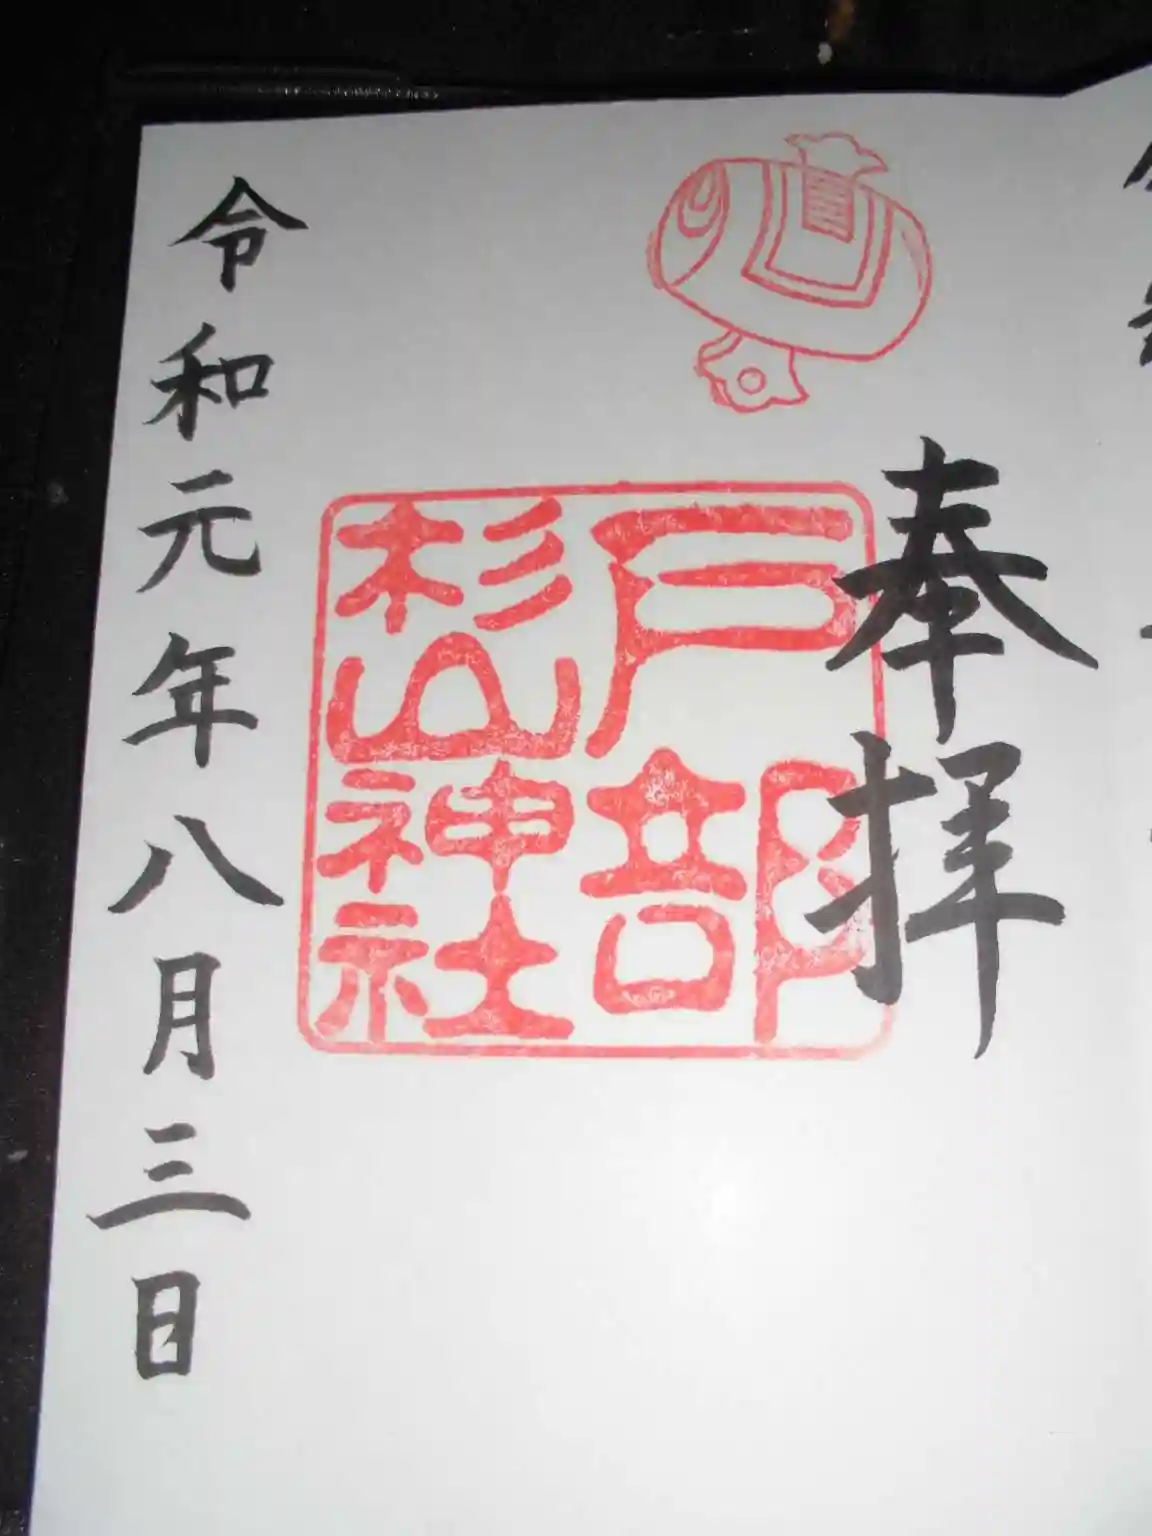 奉拝
戸部
杉山
神社
令和元年八月三日